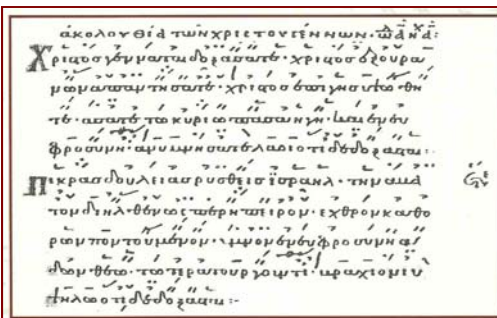 ἀκολουθία τῶν χριστουγέννων·
Χριστος γενναται δοξασατε· χριστος εξ ουρα
νων απαντησατε· χριστος επι γης υψωθη
τε· ασατε τω κυριω πασα η γη· και εν ευ
φροσυνη· ανυμνησατε λαοι οτι δεδοξασται:-
Πικρας δουλειας ρυσθεις ισραηλ· την αβα
τον διηλθεν ωσπερ ηπειρον· εχθρον καθο
ρων ποντουμενον· υμνον εν ευφροσυνη α
δων θεω· τω τερατουργουντι· βραχιονι υ
ψηλω οτι δεδοξασται:-